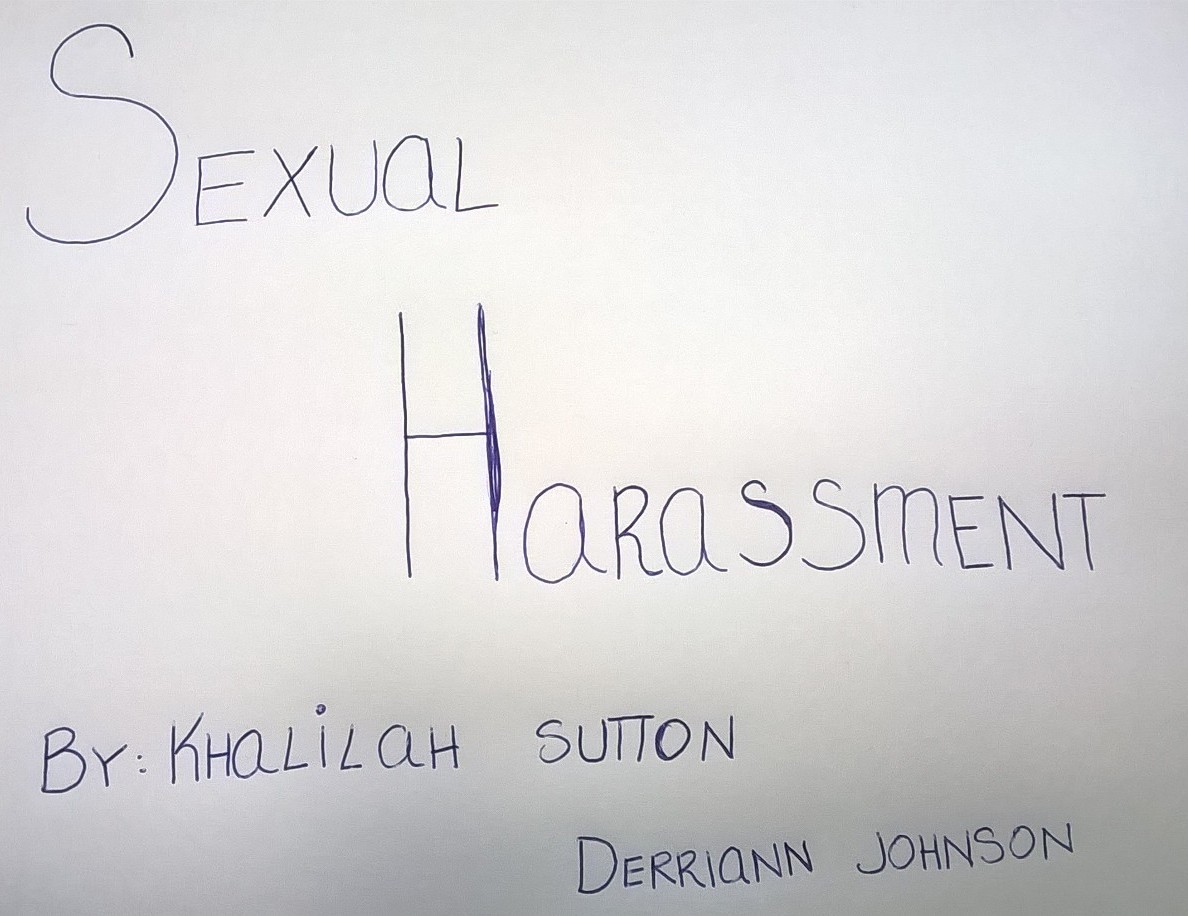 Sexual
Harassment
By: Khalilah Sutton
Derriann Johnson